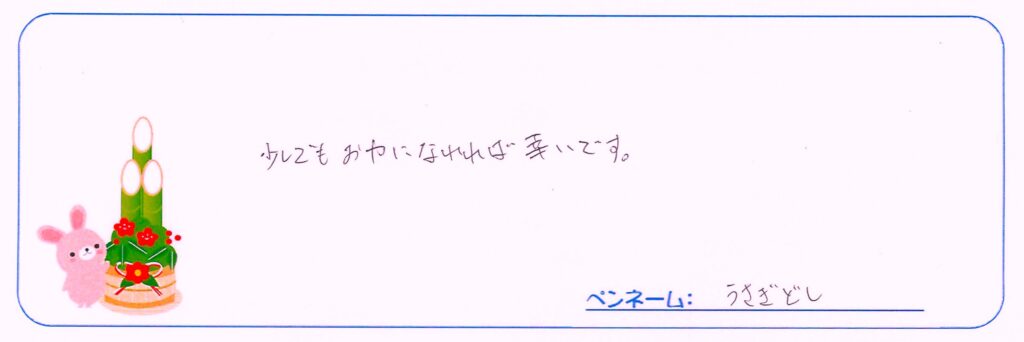 少しでもお力になれれば幸いです。
ペンネーム： うさぎどし